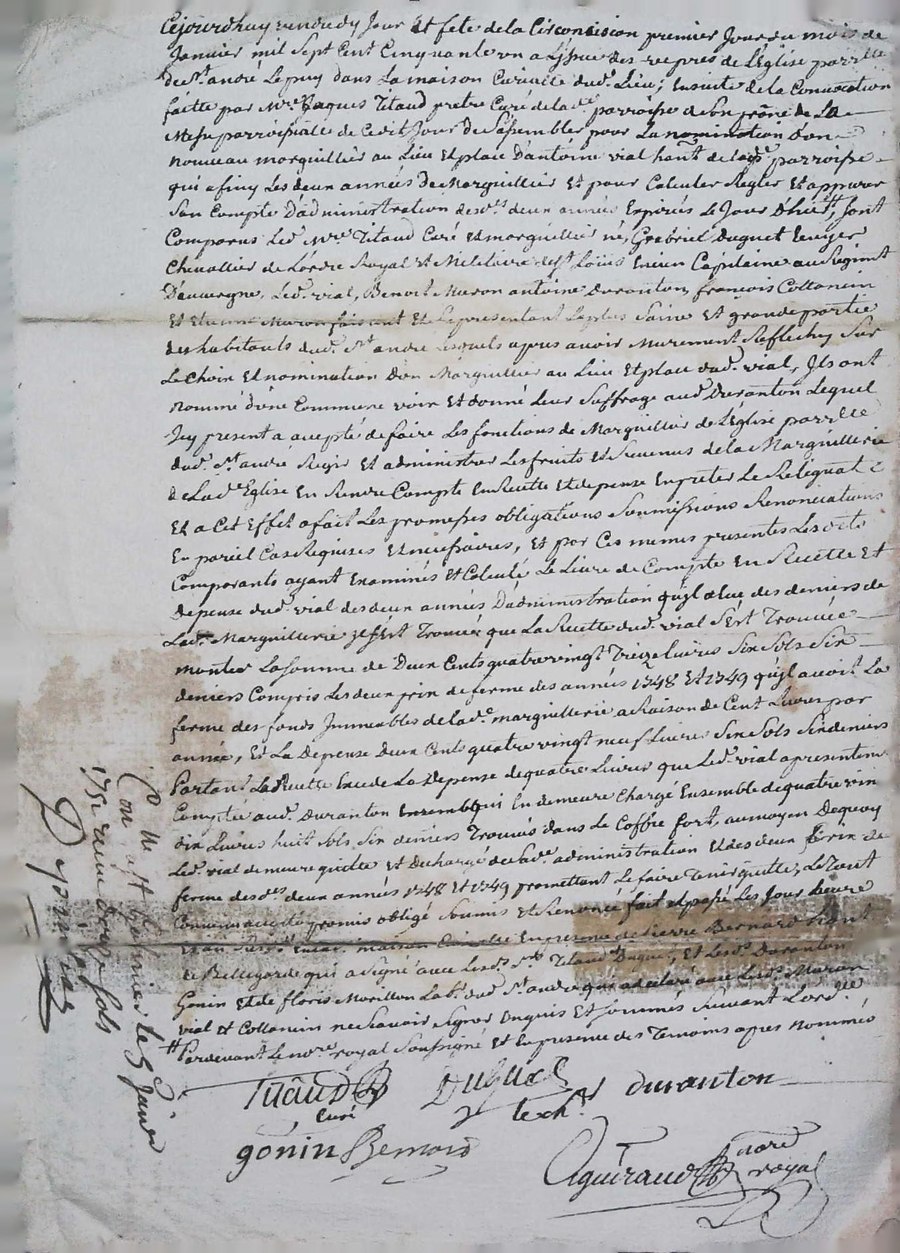 Cejourdhuy vendredy Jour et fete de la Circoncision premier Jour du mois de
Janvier mil Sept Cent Cinquante un a L'issue des vepres de L'Eglise parr.lle
de St. andré Lepuy dans La maison Curialle dud. Lieu, Ensuite de la Convocation
faitte par Mre. Jaques Titaud pretre Curé de lade. parroisse a Son prône de La
Messe parroissialle de Cedit Jour de S'assembler pour La nomination d'un
nouveau marguillier au Lieu Et place D'antoine vial hant. de lad. parroisse
qui a finy Les deux années De Marguillier Et pour Calculer Regler Et appurer
Son Compte D'administration desd. deux années Expirés Le Jour D'hier, Sont
Comparus Led. Mre. Titaud Curé et marguillier né, Gabriel Duguet Ecuyer
Chevallier de L'ordre Royal et Militaire de St. Loüis Encien Capitaine au Regimt.
D'auvergne, Led. vial, Benoit Muron antoine Duranton, françois Collonin
Et Etienne Muron faisant Et Representant La plus Saine Et grande partie
des habitants dud. St. andré Lesquels apres avoir Murement Reflechy Sur
Le Choix Et nomination D'un Marguillier au Lieu Et place dud. vial, Ils ont
nommé d'une Commune voix Et donné Leur Suffrage aud. Duranton Lequel
Icy present a accepté de faire Les fonctions de Marguillier de L'Eglise parr.lle
dud. St. andré Regir Et administrer Les fruits et Revenus de la Marguillerie
de Lad. Eglise En Rendre Compte En Recette Et depense En preter Le Reliquat
Et a Cet Effet a fait Les promesses obligations Soumissions Renonciations
En pareil Cas Requises Et necessaires, Et par Ces memes presentes Lesdits
Comparants ayant Examinés Et Calculé Le Livre de Compte En Recette Et
depense dud. vial des deux années D'administration qu'il a Eue des deniers de
Lad. Marguillerie il S'est Trouvé que La Recette dud. vial S'est Trouvée
monter La Somme de Deux Cents quatre vingt Treize Livres Six Sols Six
deniers Compris Les deux prix de ferme des années 1748 Et 1749 qu'il avoit La
ferme des fonds Immeubles de lade. marguillerie a Raison de Cent Livres par
année, Et La Depense Deux Cents quatre vingt neuf Livres Six Sols Six deniers
Partant La Recette Excede La Depense de quatre Livres que Led. vial a presentem.
Comptée aud. Duranton qui En demeure Chargé Ensemble de quatre vin
dix Livres huit Sols Six deniers Trouvés dans Le Coffre fort, au moyen De quoy
Led. vial demeure quitte Et Dechargé de Sad. administration Et des deux prix de
ferme desd. deux années 1748 Et 1749 promettant Le faire Tenir quitte, Le Tout
promis obligé Soumis Et Renoncé fait Et passé Les Jour heure
Et an Susd. En lad. maison Curialle En presence de Pierre Bernard
de Bellegarde qui a Signé avec Lesd. Srs. Titaud Duguet, Et Lesd. Duranton
Gonin Et de floris Morillon Lab. dud. St. andré qui a declaré avec Lesd. Muron
vial et Collonin ne Scavoir Signer Enquis Et Sommés Suivant L'ord.
Pardevant Le nore. royal Soussigné Et En presence des Temoins apres nommés
Titaud
Curé
Duguet
Lexh.
duranton
gonin Bernard
Aguiraud nore
royal
le 5 Janvier
1751 douze Sols